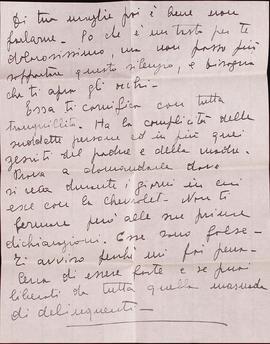 Di tua moglie poi è bene non
parlarne. So che è un tasto per te
dolorosissimo, ma non posso più
sopportare questo silenzio, e bisogna
che ti apra gli occhi.
Essa ti cornifica con tutta
tranquillità. Ha la complicità delle
suddette persone ed in più quei
gesuiti del padre e della madre.
Prova a domandarle dove
si reca durante i giorni in cui
esce con la Chevrolet. Non ti
fermare però alle sue prime
dichiarazioni. Esse sono false.
Ti avviso perché mi fai pena.
Cerca di essere forte e se puoi
liberati da tutta quella masnada
di delinquenti.